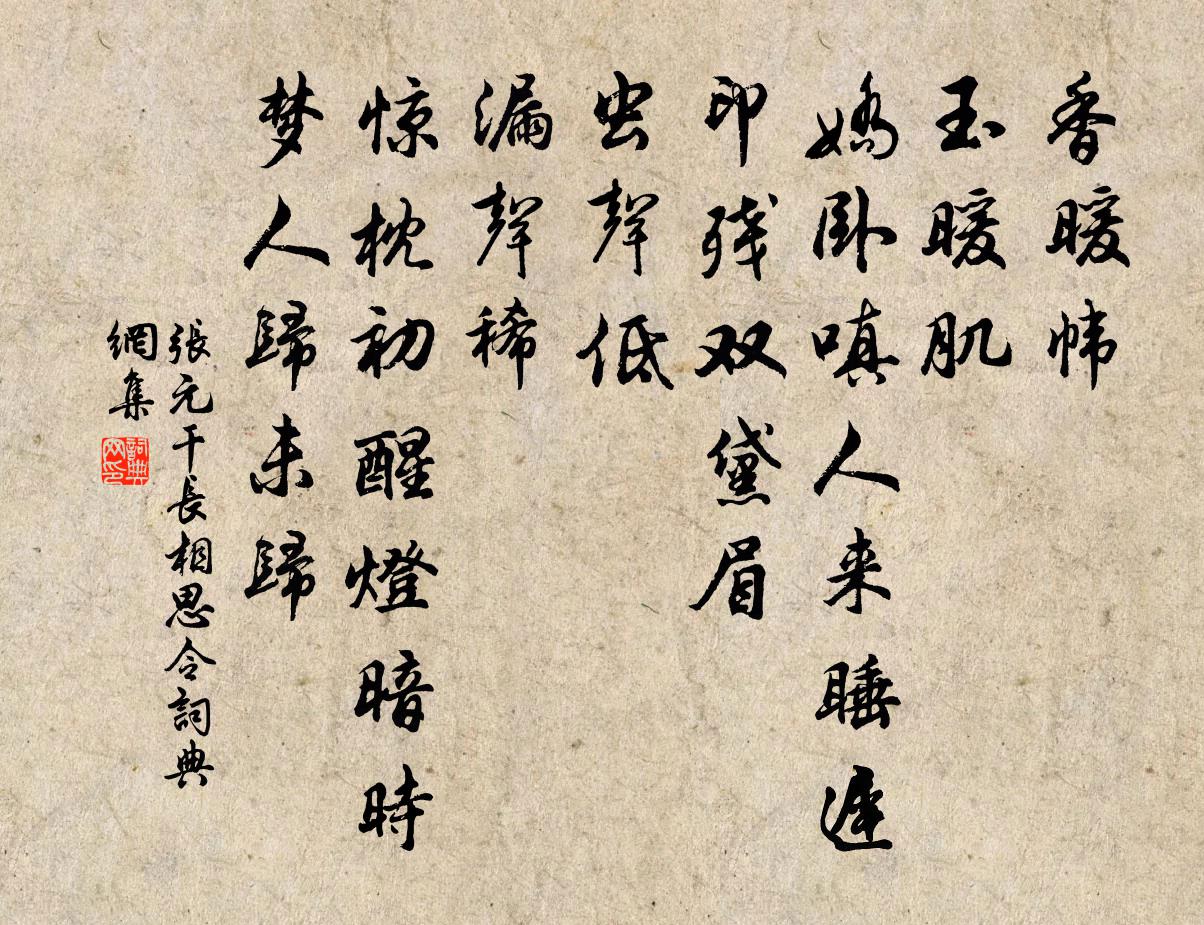 香暖帏
玉暖肌
娇卧嗔人来睡迟
印残双黛眉
虫聲低
漏聲稀
惊枕初醒燈暗時
梦人歸未歸
張元干長相思令詞典
網集
詞典
网印